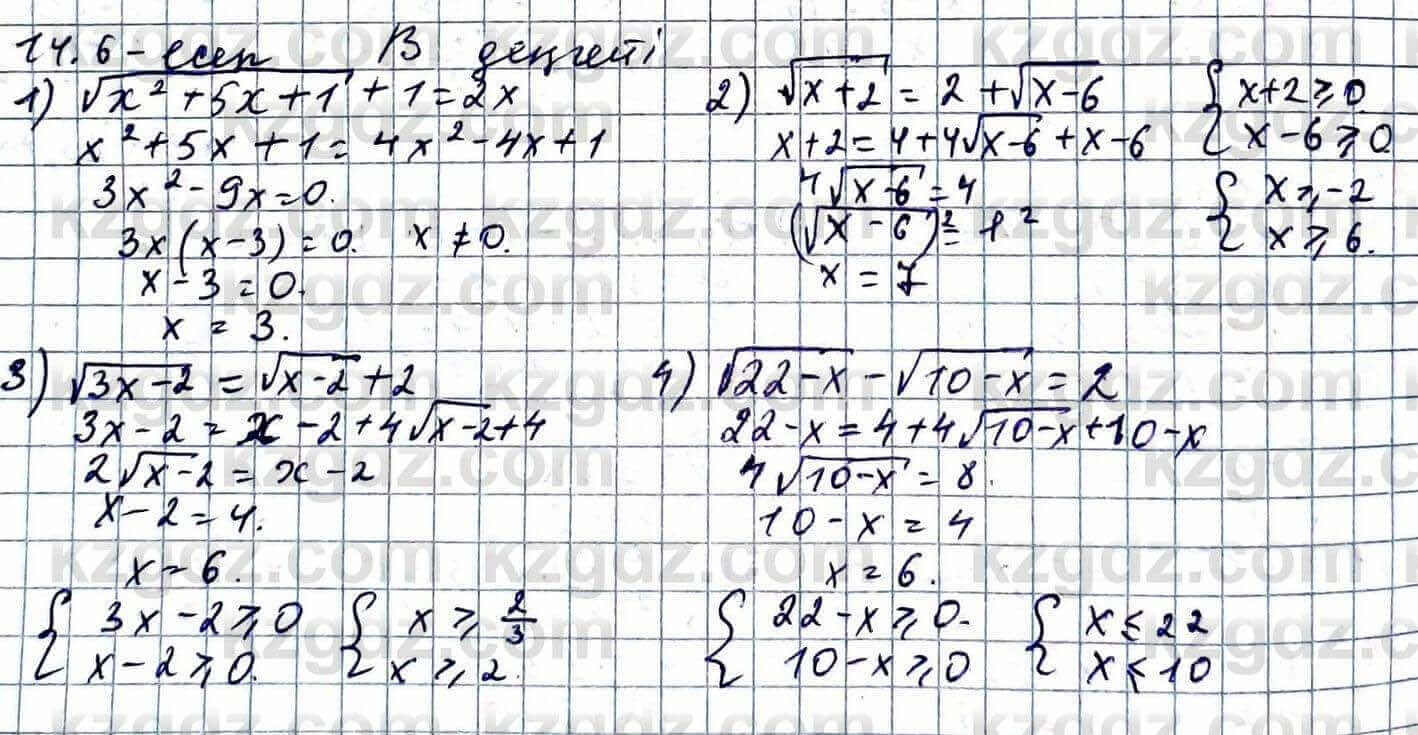 14.6-есеп B деңгейі
1) √(x² + 5x + 1) + 1 = 2x
x² + 5x + 1 = 4x² - 4x + 1
3x² - 9x = 0.
3x(x - 3) = 0. x ≠ 0.
x - 3 = 0.
x = 3.
2) √(x + 2) = 2 + √(x - 6)
x + 2 = 4 + 4√(x - 6) + x - 6
4√(x - 6) = 4
(√(x - 6))² = 1²
x = 7
{ x + 2 ⩾ 0
x - 6 ⩾ 0
{ x ⩾ -2
x ⩾ 6.
3) √(3x - 2) = √(x - 2) + 2
3x - 2 = x - 2 + 4√(x - 2) + 4
2√(x - 2) = x - 2
x - 2 = 4.
x = 6.
{ 3x - 2 ⩾ 0
x - 2 ⩾ 0.
{ x ⩾ 2/3
x ⩾ 2.
4) √(22 - x) - √(10 - x) = 2
22 - x = 4 + 4√(10 - x) + 10 - x
4√(10 - x) = 8.
10 - x = 4
x = 6.
{ 22 - x ⩾ 0.
10 - x ⩾ 0
{ x ⩽ 22
x ⩽ 10
kzgdz.com